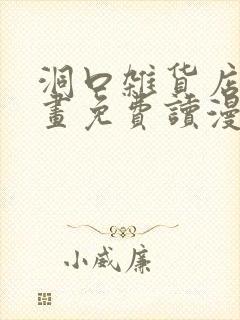 洞口雜貨店
畫免費讀漫
小威廉